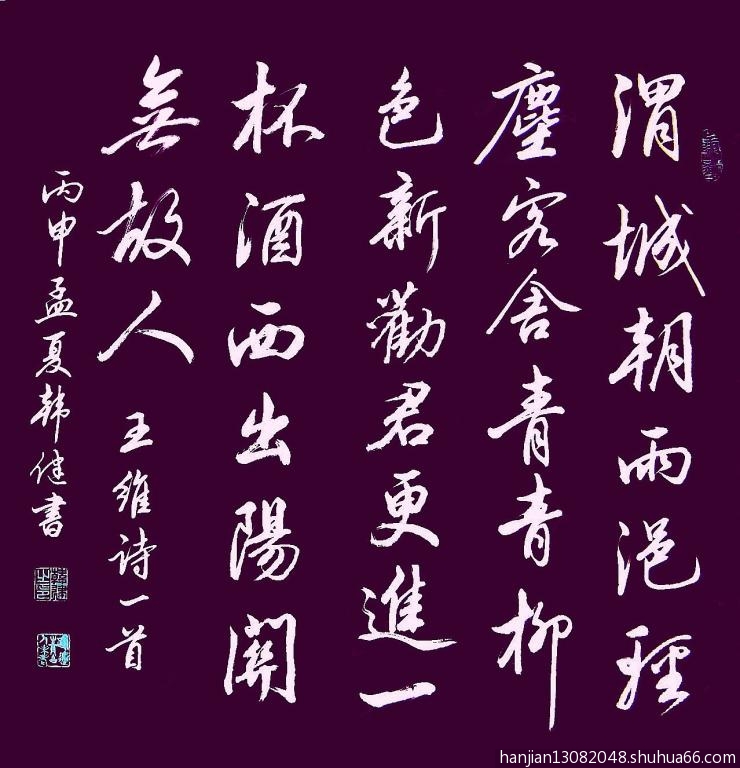 渭城朝雨浥輕
塵客舍青青柳
色新勸君更進一
杯酒西出陽關
無故人 王維诗一首
丙申孟夏韩健書
hanjian13082048.shuhua66.com